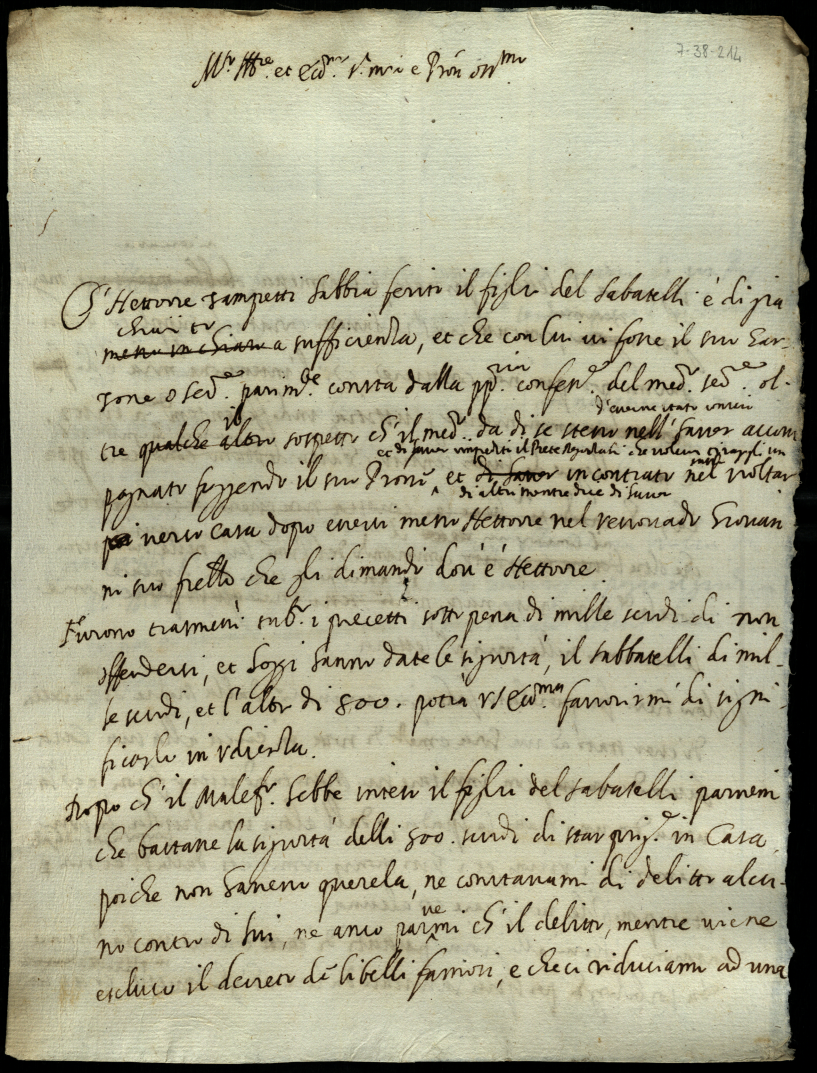 7-38-214
Ill.re et Ecc.mo S.r mio e Pron oss.mo
Ch'Hettorre Zampetti habbia ferito il figlio del Sabatelli è di già
chiarito
meso in chiaro a sufficienza, et che con lui vi fosse il suo Gar-
zone o ser.e parim.te consta dalla pp.ria confes.e del med.o ser.e ol-
d'avervi stato
il
tre qualche altro sospetto ch'il med.o da di se stesso nell'haver accom
et di haver impedito il Prete che voleva
pagnato fuggendo il suo Prone, et di haver incontrato nel voltar
di altri mentre dice di haver
poi verso casa dopo esservi messo Hettorre nel Giovan
ni suo frello che gli dimandò dov'è Hettorre.
Furono trasmessi sub.o i precetti sotto pena di mille scudi di non
offendersi, et hoggi hanno date le sigurtà, il Sabbatelli di mil-
le scudi, et l'altro di 800. potrà VS Ecc.ma favorirmi di signi-
ficarlo in Udienza.
Dopo ch'il Malef.o hebbe inteso il figlio del Sabatelli parvemi
che bastasse la sigurtà delli 500. scudi di star prig.e in Casa,
poiche non havevo querela, ne constavami di delitto alcu-
no contro di lui, ne anco parvemi ch'il delitto, mentre viene
escluso il decreto de libelli famosi, e che ci riduciamo ad una